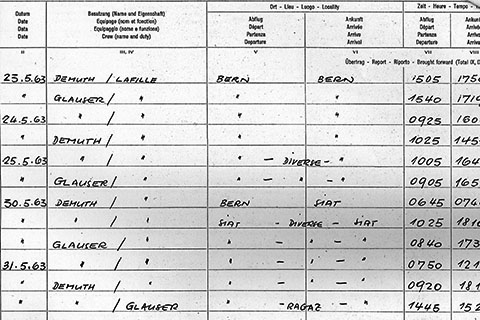 Ort - Lieu - Luogo - Locality Zeit - Heure - Tempo -
Datum Besatzung (Name und Eigenschaft) Abflug Ankunft Abflug Ankunft
Equipage (nom et fonction) Départ Arrivée Départ Arrivée
Equipaggio (nome e funzione) Partenza Arrivo Partenza Arrivo
Date Crew (name and duty) Departure Arrival Departure Arrival
II III, IV V VI VII VIII
Übertrag - Report - Riporto - Brought forward (Total IX,
23.5.63 DEMUTH / LAFILLE BERN BERN 1505 175
" GLAUSER / " " " 1540 171
24.5.63 " / " " " 0925 160
" DEMUTH / " " " 1025 145
25.5.63 " / " " - DIVERSE - " 1005 164
" GLAUSER / " " - " - " 0905 165
30.5.63 DEMUTH / " BERN SIAT 0645 074
" " / " SIAT - DIVERSE - SIAT 1025 181
" GLAUSER / " " - " - " 0840 173
31.5.63 " / " " " " 0750 121
" DEMUTH / " " - " - " 0920 181
" " / GLAUSER " - RAGAZ - " 1445 152